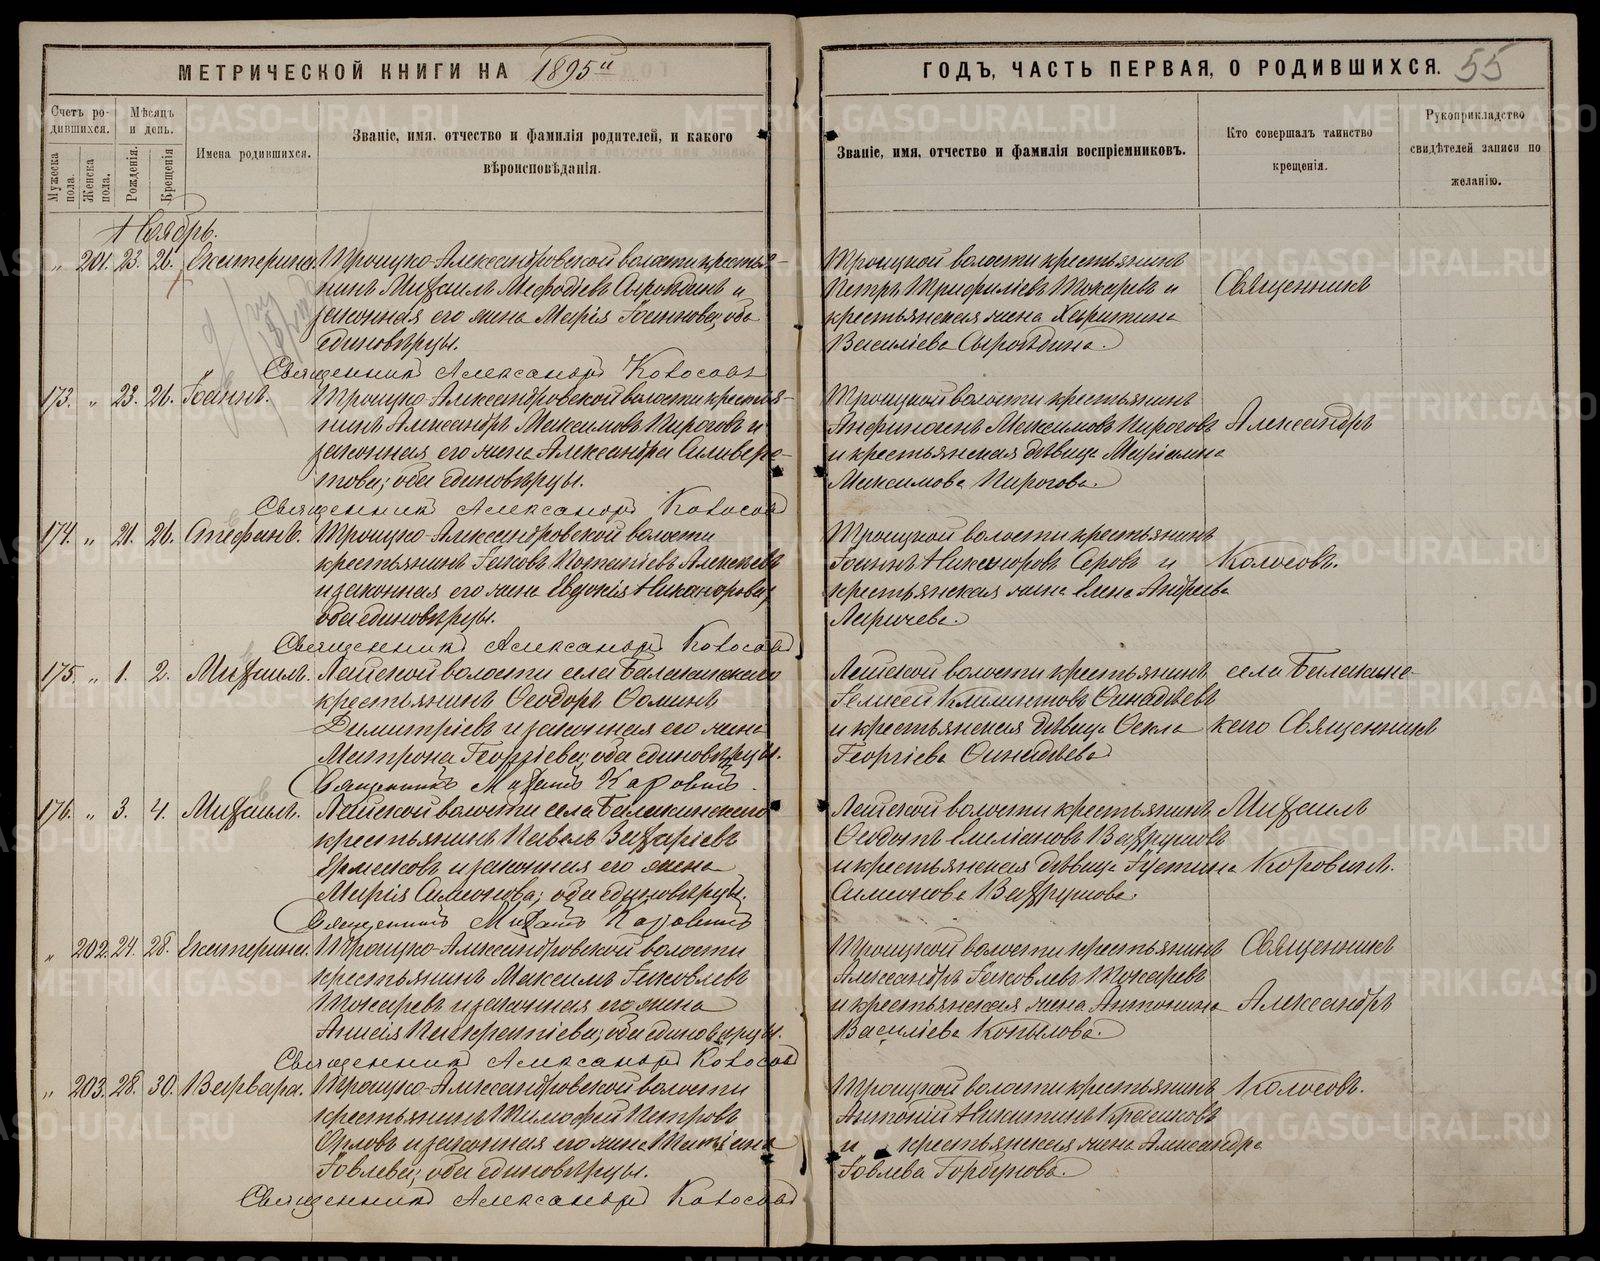 МЕТРИЧЕСКОЙ КНИГИ НА 1895й
ГОДЪ, ЧАСТЬ ПЕРВАЯ, О РОДИВШИХСЯ. 55
Счетъ родившихся.
Мужеска пола.
Женска пола.
Мѣсяцъ и день.
Рожденія.
Крещенія
Имена родившихся.
Званіе, имя, отчество и фамилія родителей, и какого
вѣроисповѣданія.
Званіе, имя, отчество и фамилія воспріемниковъ.
Кто совершалъ таинство
крещенія.
Рукоприкладство
свидѣтелей записи по
желанію.
Ноябрь.
„ 201. 23. 26. Екатерина. Троицко-Александровской волости крестья-
нинъ Михаилъ Меѳодіевъ Сыроѣдинъ и
законная его жена Марія Іоаннова; оба
единовѣрцы.
Священникъ Александръ Колосовъ
Троицкой волости крестьянинъ
Петръ Трифиліевъ Токаревъ и
крестьянская жена Харитина
Василіева Сыроѣдина.
Священникъ
173. „ 23. 26. Іоаннъ. Троицко-Александровской волости крестья-
нинъ Александръ Максимовъ Пироговъ и
законная его жена Александра Сильвере-
това; оба единовѣрцы.
Священникъ Александръ Колосовъ
Троицкой волости крестьянинъ
Максимовъ Пироговъ
и крестьянская дѣвица Маріамна
Максимова Пирогова.
Александръ
174. „ 21. 26. Стефанъ. Троицко-Александровской волости
крестьянинъ Іаковъ Алексѣевъ
и законная его жена Евдокія Никанорова;
оба единовѣрцы.
Священникъ Александръ Колосовъ
Троицкой волости крестьянинъ
Іоаннъ Никаноровъ Серовъ и
крестьянская жена Елена Андреева
Ларичева.
Колосовъ.
175. „ 1. 2. Михаилъ. волости села Балакинскаго
крестьянинъ Ѳеодоръ Ѳоминъ
Димитріевъ и законная его жена
Матрона Георгіева; оба единовѣрцы.
Священникъ Михаилъ Коровинъ
волости крестьянинъ
Елисей Климентовъ
и крестьянская дѣвица Ѳекла
Георгіева
села Балакинс-
каго Священникъ
176. „ 3. 4. Михаилъ. волости села Балакинскаго
крестьянинъ Павелъ Захаріевъ
Ермаковъ и законная его жена
Марія Симонова; оба единовѣрцы.
Священникъ Михаилъ Коровинъ
волости крестьянинъ
Ѳеодотъ Емиліановъ Вахрушовъ
и крестьянская дѣвица Іустина
Симонова Вахрушова.
Михаилъ
Коровинъ.
„ 202. 24. 28. Екатерина. Троицко-Александровской волости
крестьянинъ Максимъ Іаковлевъ
Токаревъ и законная его жена
Анисія Панкратіева; оба единовѣрцы.
Священникъ Александръ Колосовъ
Троицкой волости крестьянинъ
Александръ Іаковлевъ Токаревъ
и крестьянская жена Антонина
Василіева Копылова.
Священникъ
Александръ
„ 203. 28. 30. Варвара. Троицко-Александровской волости
крестьянинъ Тимофей Петровъ
Орловъ и законная его жена Татіана
Іовлева; оба единовѣрцы.
Священникъ Александръ Колосовъ
Троицкой волости крестьянинъ
Антоній Никитинъ Красиковъ
и крестьянская жена Александра
Іовлева Горбунова.
Колосовъ.
METRIKI.GASO-URAL.RU